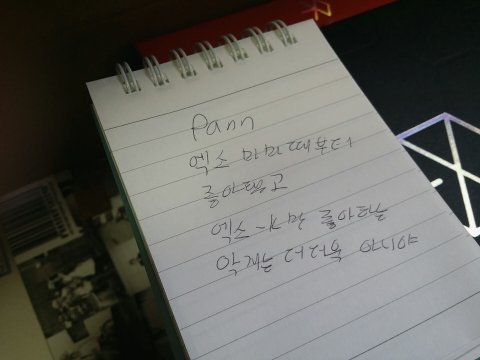 Pann
엑소 마마때부터
좋아했고
엑소-K만 좋아하는
악개는 더더욱 아니야